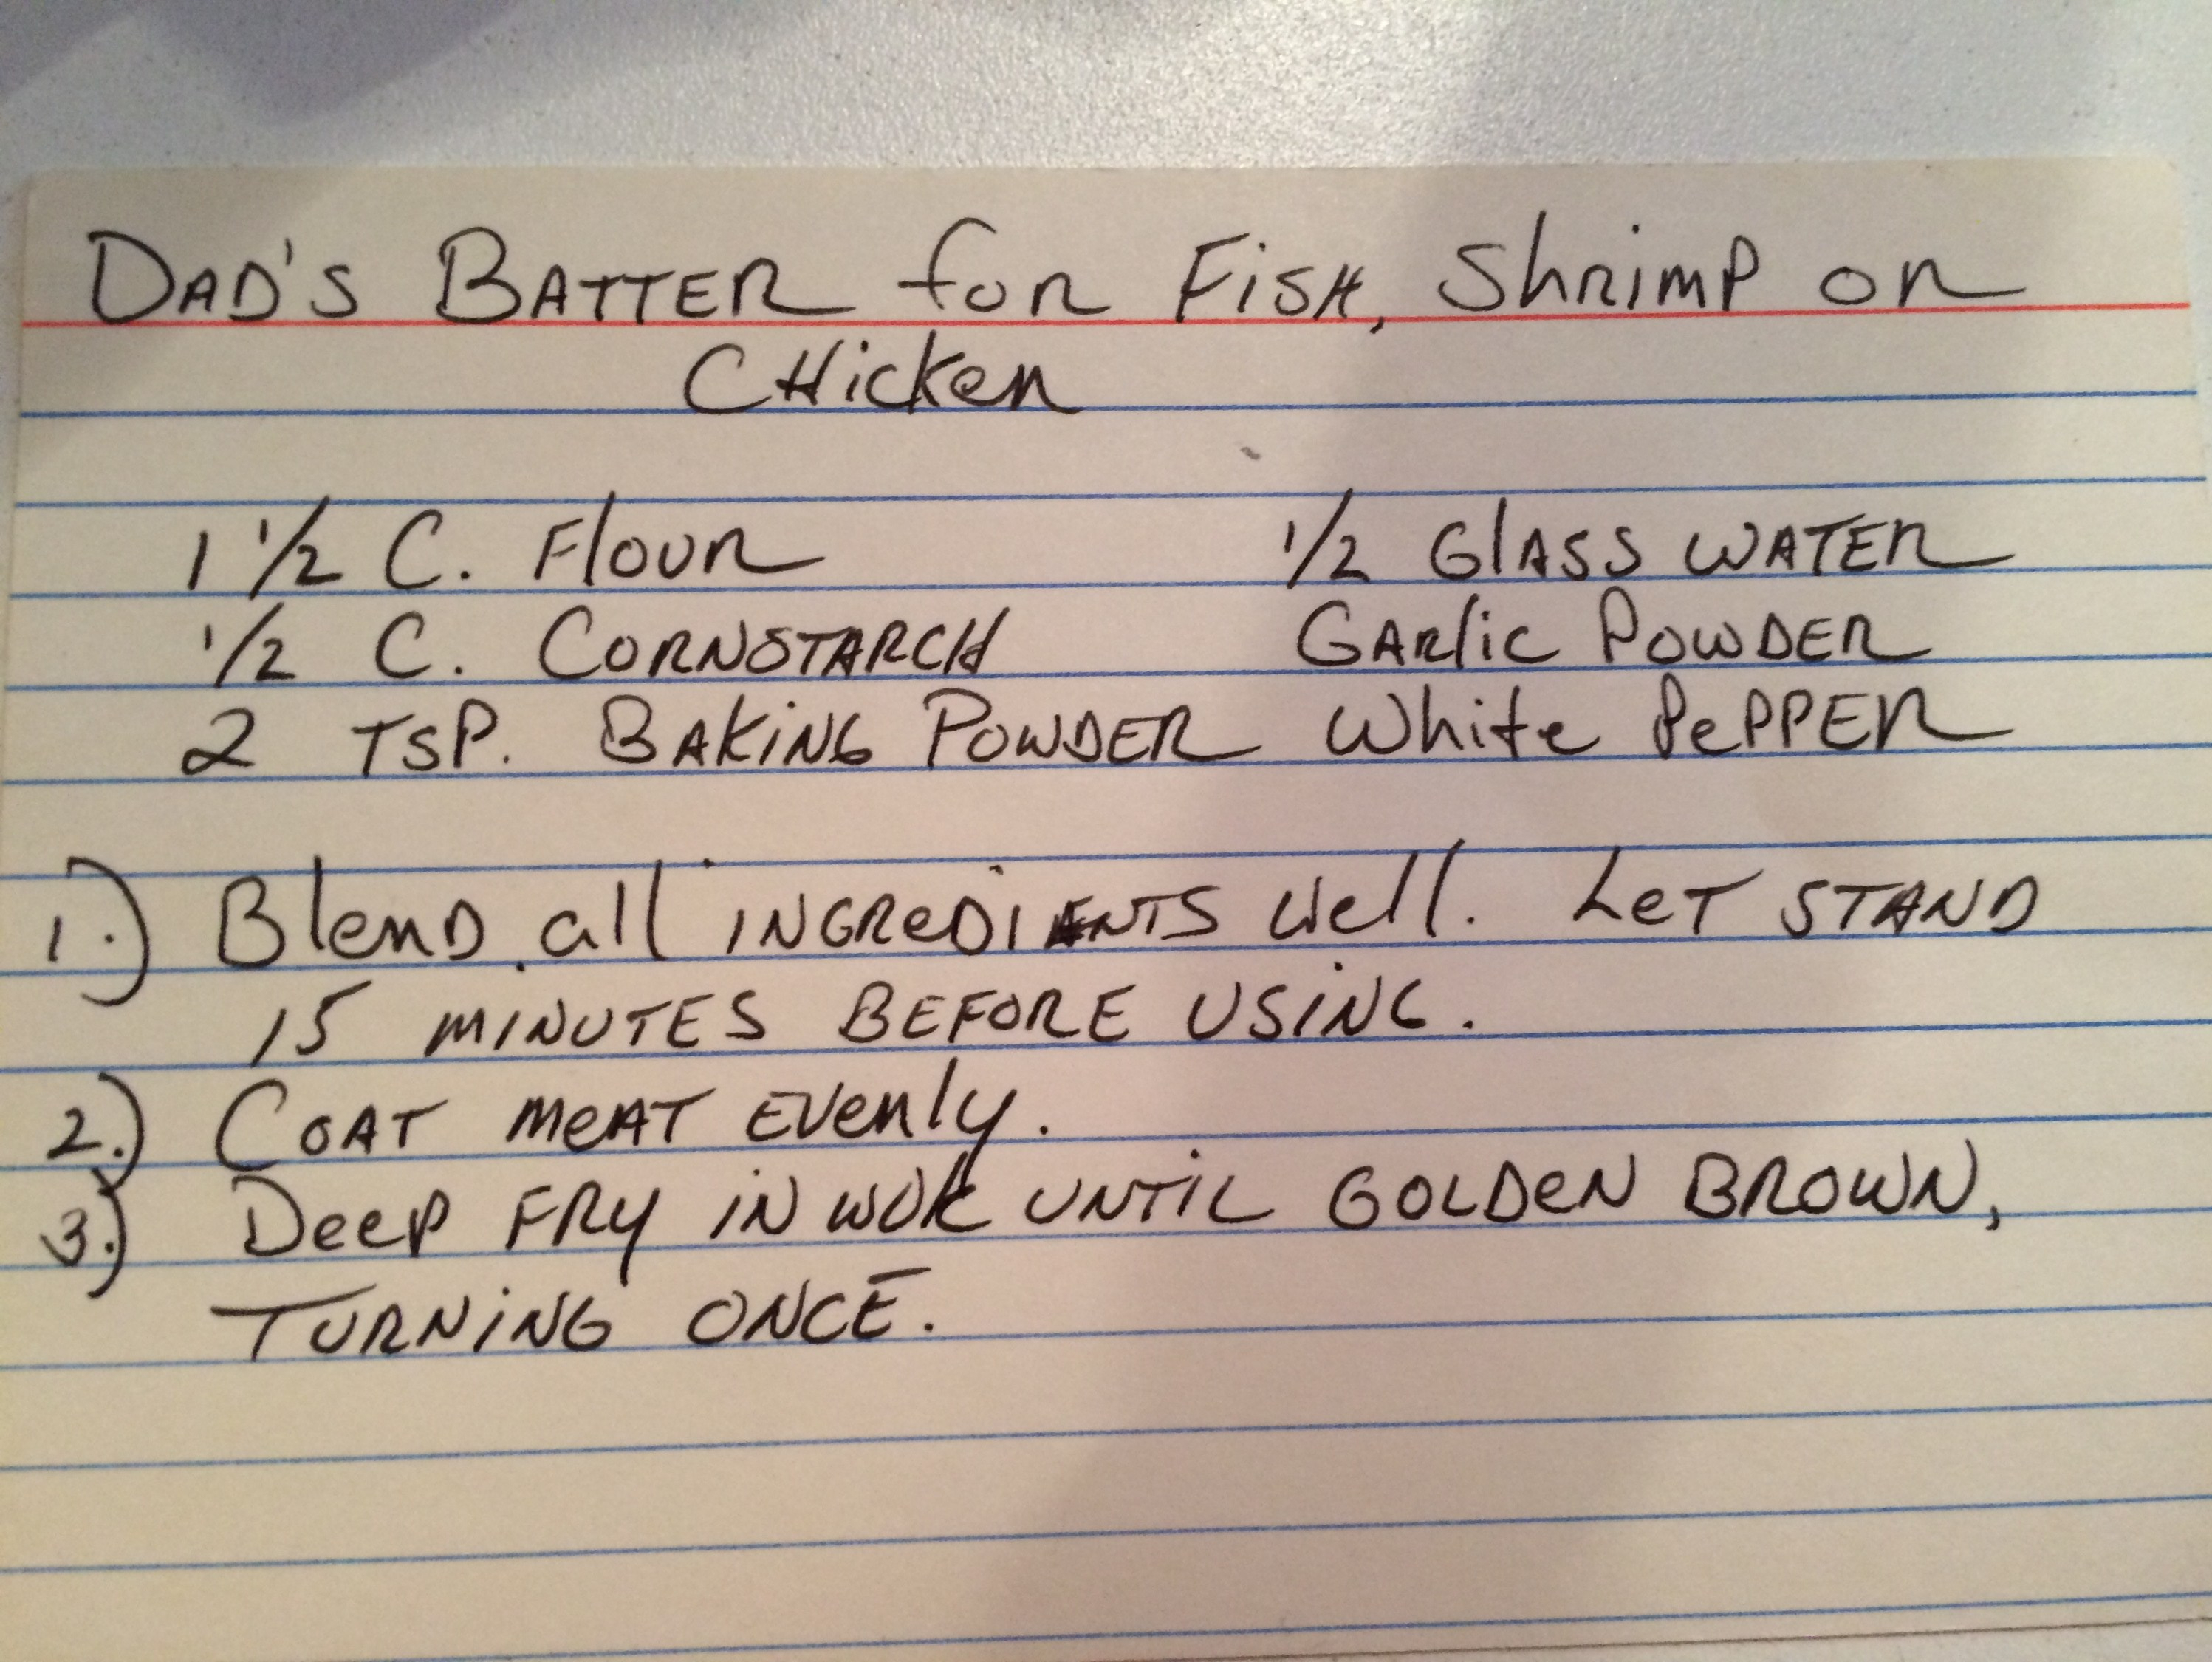 DAD'S BATTER for FiSH, ShRimP OR
CHicken
1 1/2 C. Flour 1/2 GlASS WATER
1/2 C. CORNSTARCH GARlic POWDER
2 TSP. BAKiNG POWDER White PePPER
1.) BlenD all iNGReDiENTS Well. LeT STAND
15 MINUTES BEFORE USiNG.
2.) COAT MeAT EVenly.
3.) DeeP FRY iN WOK UNTiL GOLDeN BROWN,
TURNiNG ONCE.